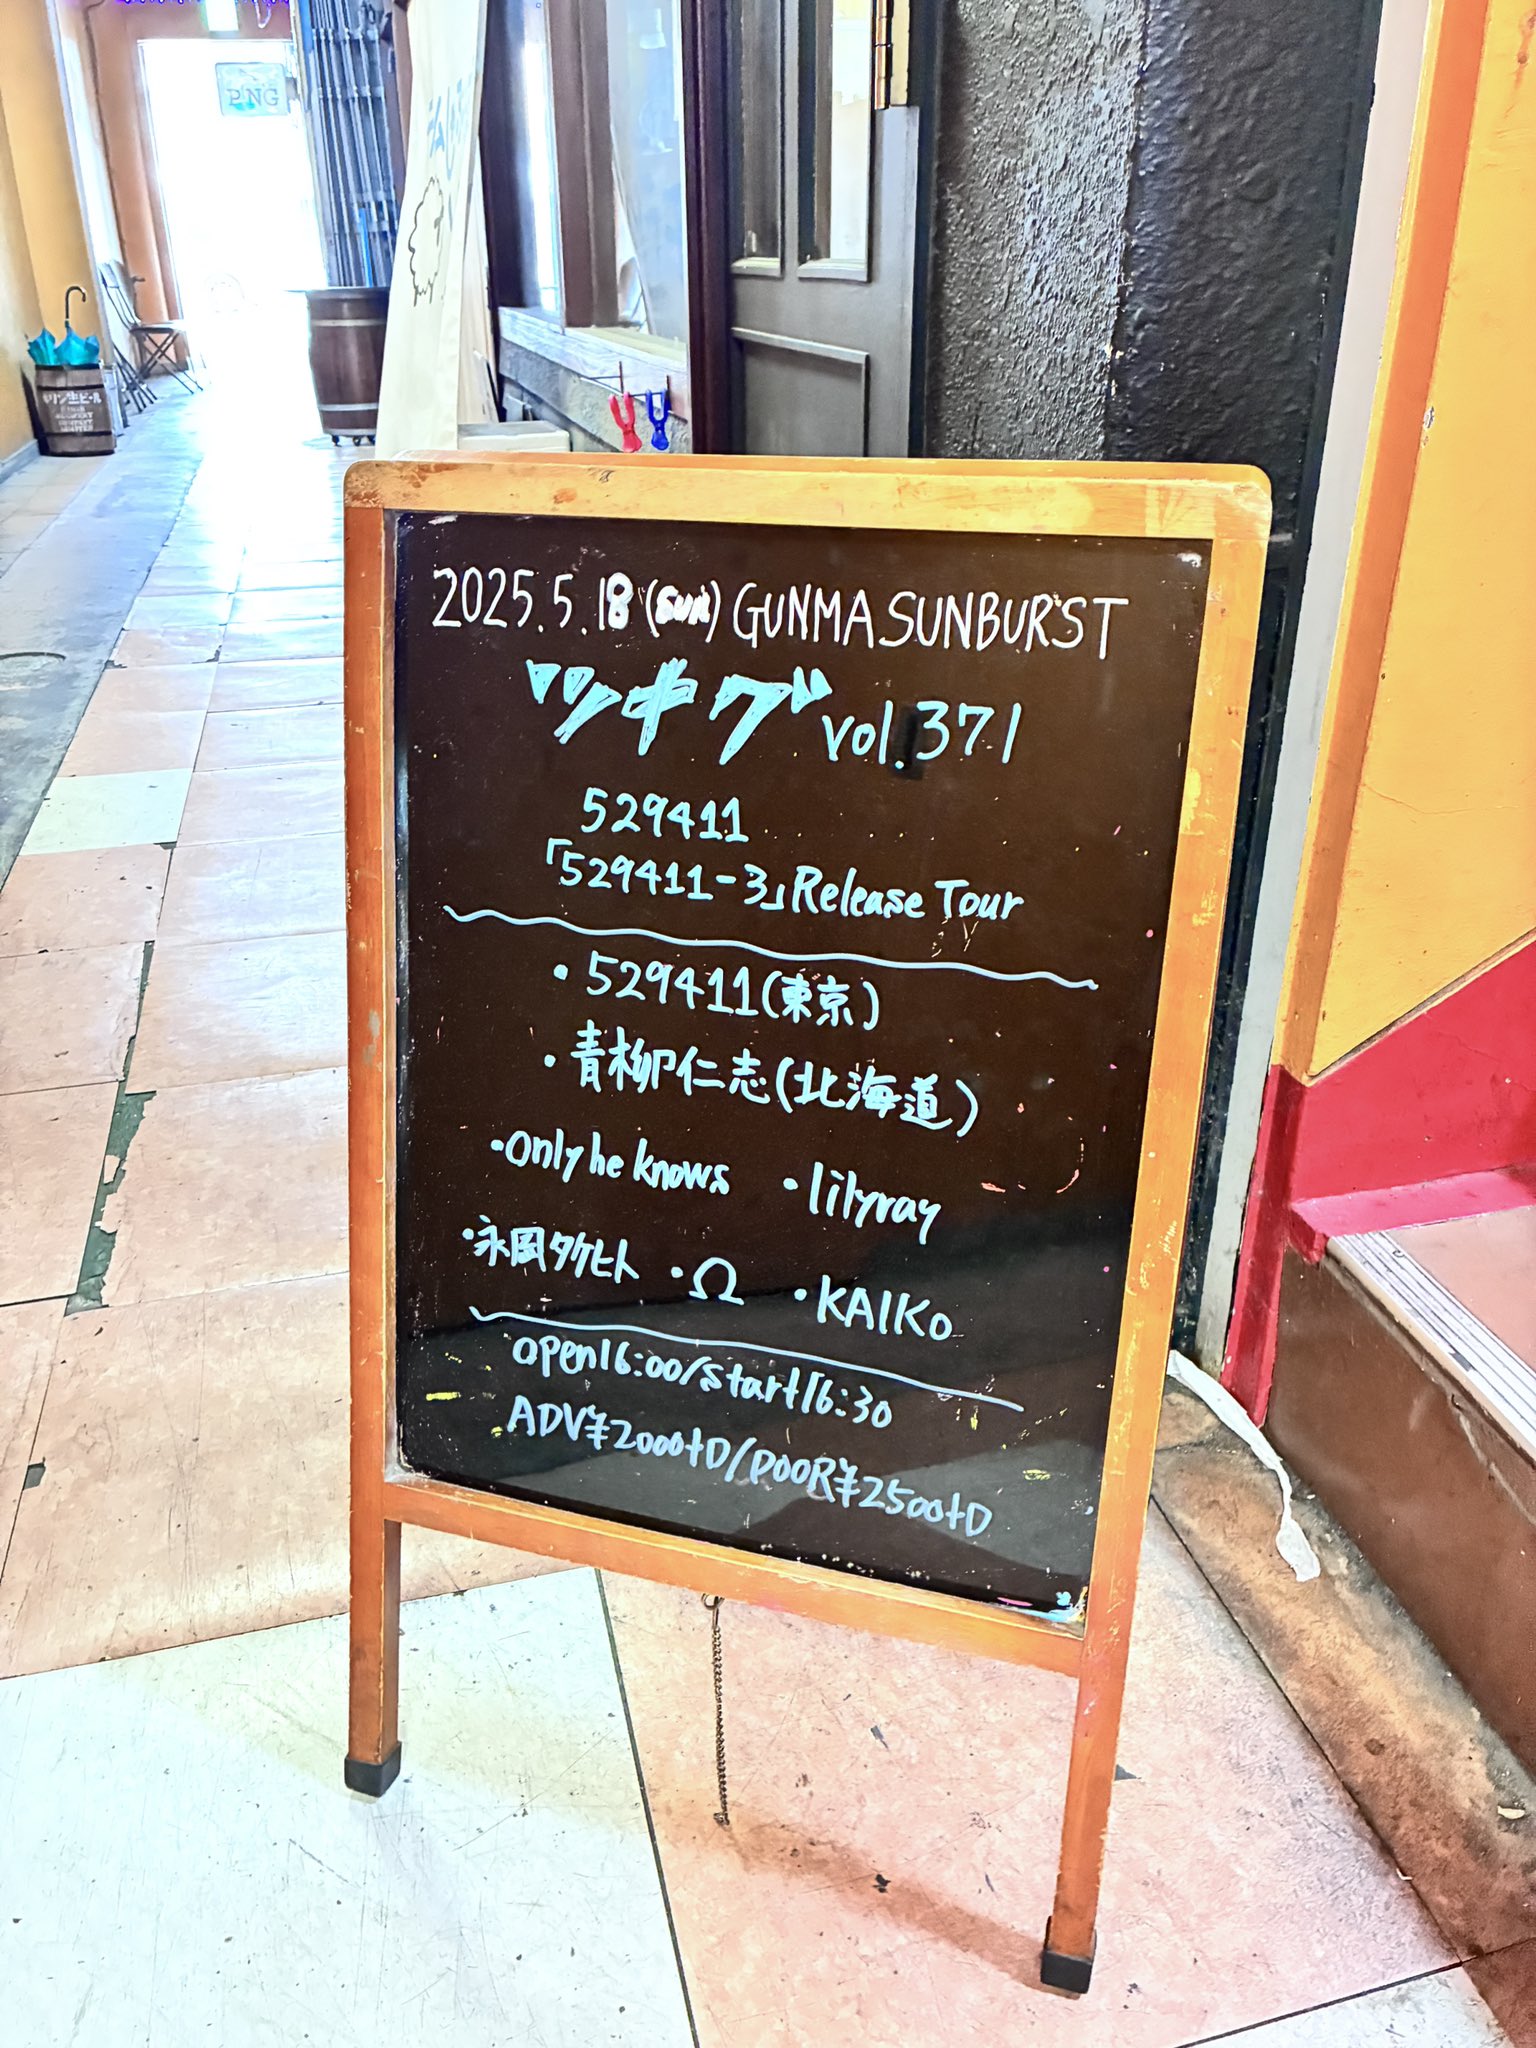 P!NG
キリン生ビール
2025.5.18(sun) GUNMA SUNBURST
ツキグ vol.371
529411
「529411-3」Release Tour
・529411(東京)
・青柳仁志(北海道)
・only he knows ・lilyray
・永風タケヒト ・Ω ・KAIKO
open16:00/start16:30
ADV¥2000+D/DOOR¥2500+D